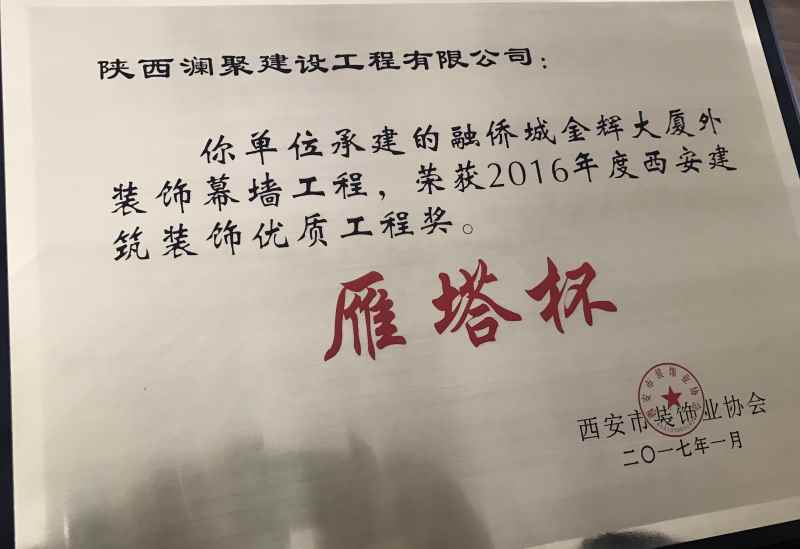 陕西澜聚建设工程有限公司：
你单位承建的融侨城金辉大厦外
装饰幕墙工程，荣获2016年度西安建
筑装饰优质工程奖。
雁塔杯
西安市装饰业协会
二〇一七年一月